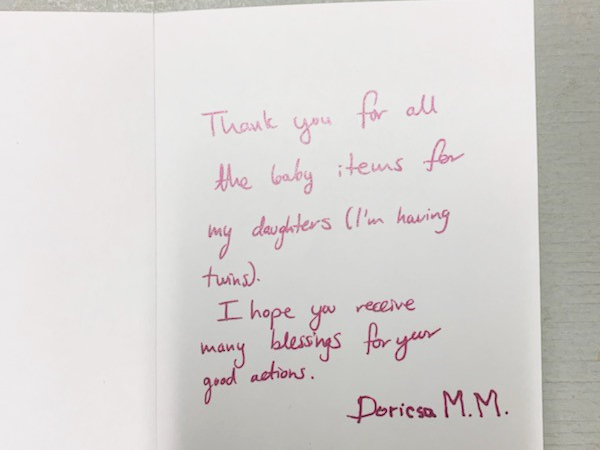 Thank you for all
the baby items for
my daughters (I'm having
twins).
I hope you receive
many blessings for your
good actions.
Doricsa M.M.